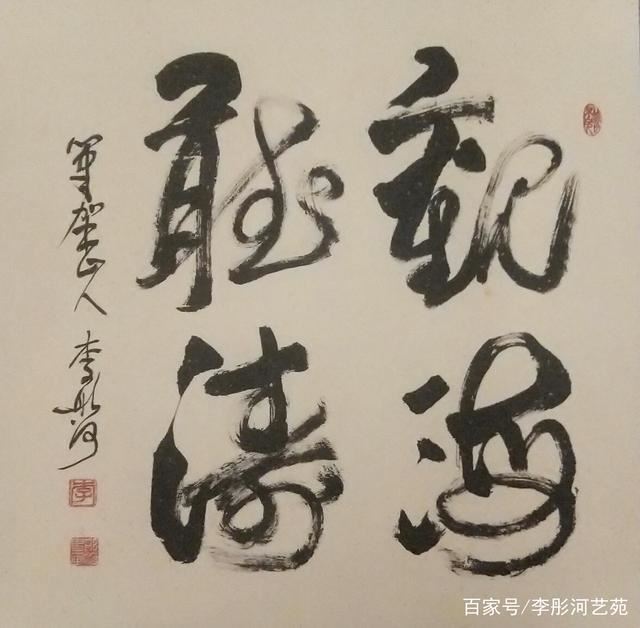 觀海
聽濤
筆架山人 李彤河
李
百家号/李彤河艺苑